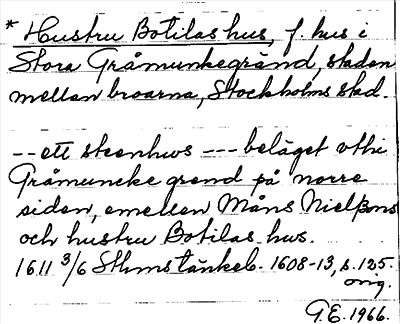 * Hustru Botilas hus, f. hus i
Stora Gråmunkegränd, staden
mellan broarna, Stockholms stad.
-- ett steenhus --- beläget uthi
Gråmuncke grend på norre
siden, emellen Måns Nielßons
och hustru Botilas hus.
1611 3/6 Sthms tänkeb. 1608-13, s. 125.
orig.
G.E. 1966.